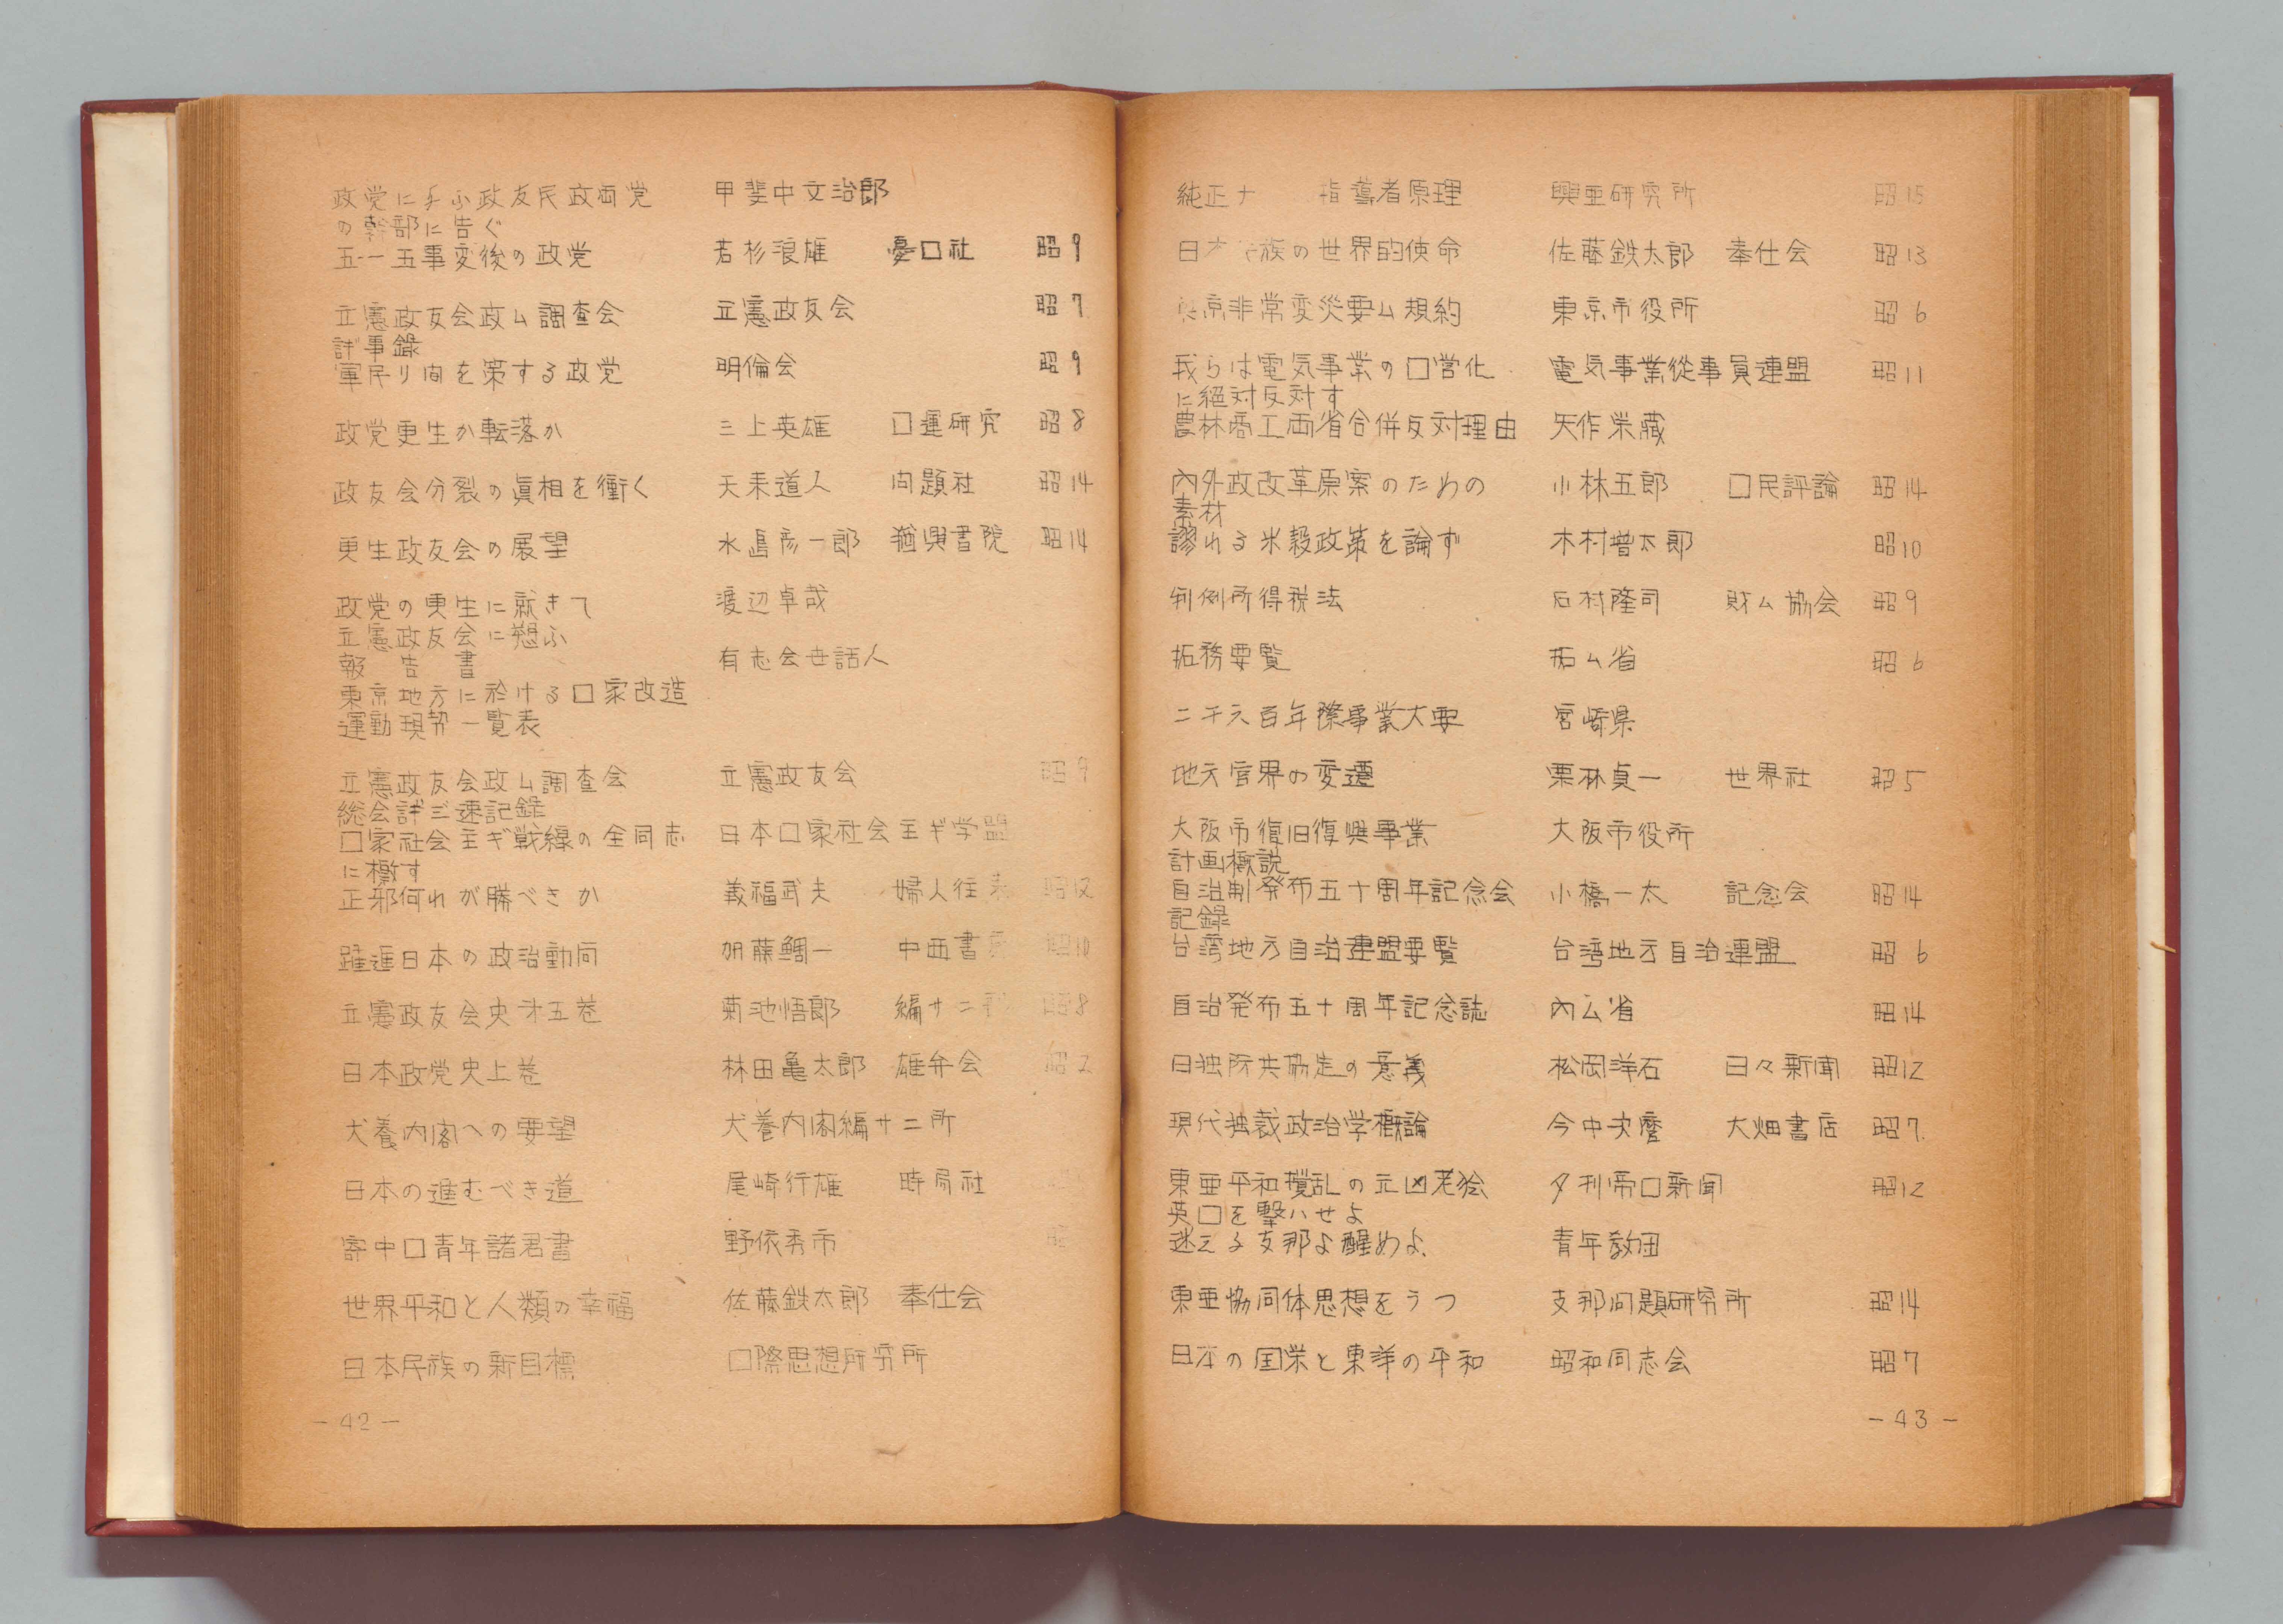 政党に手ふ政友民政両党 甲斐中文治郎
の幹部に告ぐ
五一五事変後の政党 若杉浪雄 憂口社 昭9
立憲政友会政ム調査会 立憲政友会 昭7
議事録
軍民り间を策する政党 明倫会 昭9
政党更生か転落か 三上英雄 口運研究 昭8
政友会分裂の眞相を衝く 天来道人 问題社 昭14
更生政友会の展望 水島彦一郎 猶興書院 昭14
政党の更生に就きて 渡辺卓哉
立憲政友会に愬ふ
報告書 有志会世話人
東京地方に於ける口家改造
運動現勢一覧表
立憲政友会政ム調査会 立憲政友会 昭9
総会議三速記録
口家社会主ギ戦線の全同志 日本口家社会主ギ学盟
に檄す
正邪何れが勝べきか 義福武夫 婦人往来 昭12
躍進日本の政治動向 加藤鯛一 中西書房 昭10
立憲政友会史才五巻 菊池悟郎 編サニ 昭8
日本政党史上巻 林田亀太郎 雄弁会 昭2
犬養内閣への要望 犬養内閣編サニ所
日本の進むべき道 尾崎行雄 時局社
寄中口青年諸君書 野依秀市 昭
世界平和と人類の幸福 佐藤鉄太郎 奉仕会
日本民族の新目標 口際思想所究所
- 42 -
純正ナ 指導者原理 興亜研究所 昭15
日本 族の世界的使命 佐藤鉄太郎 奉仕会 昭13
京非常変災要ム規約 東京市役所 昭6
我らは電気事業の口営化 電気事業從事員連盟 昭11
に絶対反対す
農林商工両省合併反対理由 矢作栄藏
內外政改革原案のための 小林五郎 口民評論 昭14
素材
謬れる米穀政策を論ず 木村増太郎 昭10
判例所得税法 石村隆司 財ム協会 昭9
拓務要覧 拓ム省 昭6
二千六百年際事業大要 宮崎県
地方官界の変遷 栗林貞一 世界社 昭5
大阪市復旧復興事業 大阪市役所
計画概説
自治制発布五十周年記念会 小橋一太 記念会 昭14
記録
台湾地方自治連盟要覧 台湾地方自治連盟 昭6
自治発布五十周年記念誌 內ム省 昭14
日独防共協定の意義 松岡洋石 日々新聞 昭12
現代独裁政治学概論 今中次麿 大畑書店 昭7
東亜平和攪乱の元凶老獪 夕刊帝口新聞 昭12
英口を撃ハせよ
迷える支那よ醒めよ 青年教団
東亜協同体思想をうつ 支那问題研究所 昭14
日本の国栄と東洋の平和 昭和同志会 昭7
- 43 -